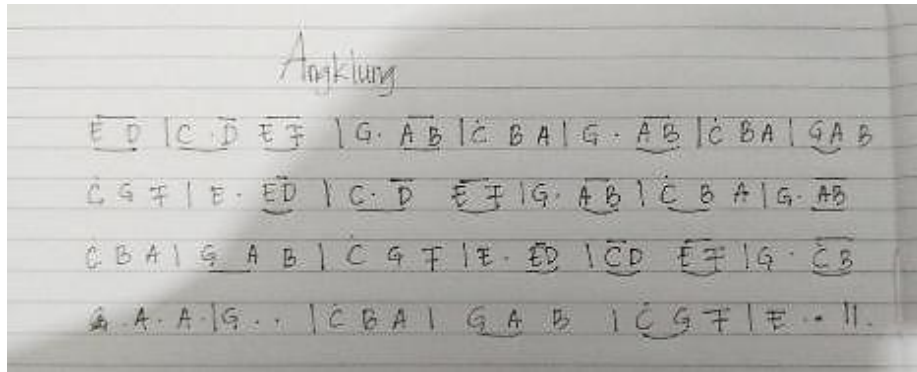 Angklung
E D | C . D E F | G . A B | Ċ B A | G . A B | Ċ B A | G A B
Ċ G F | E . E D | C . D E F | G . A B | Ċ B A | G . A B
Ċ B A | G A B | Ċ G F | E . E D | C D E F | G . Ċ B
G . A . A . | G . . | Ċ B A | G A B | Ċ G F | E . . ||.